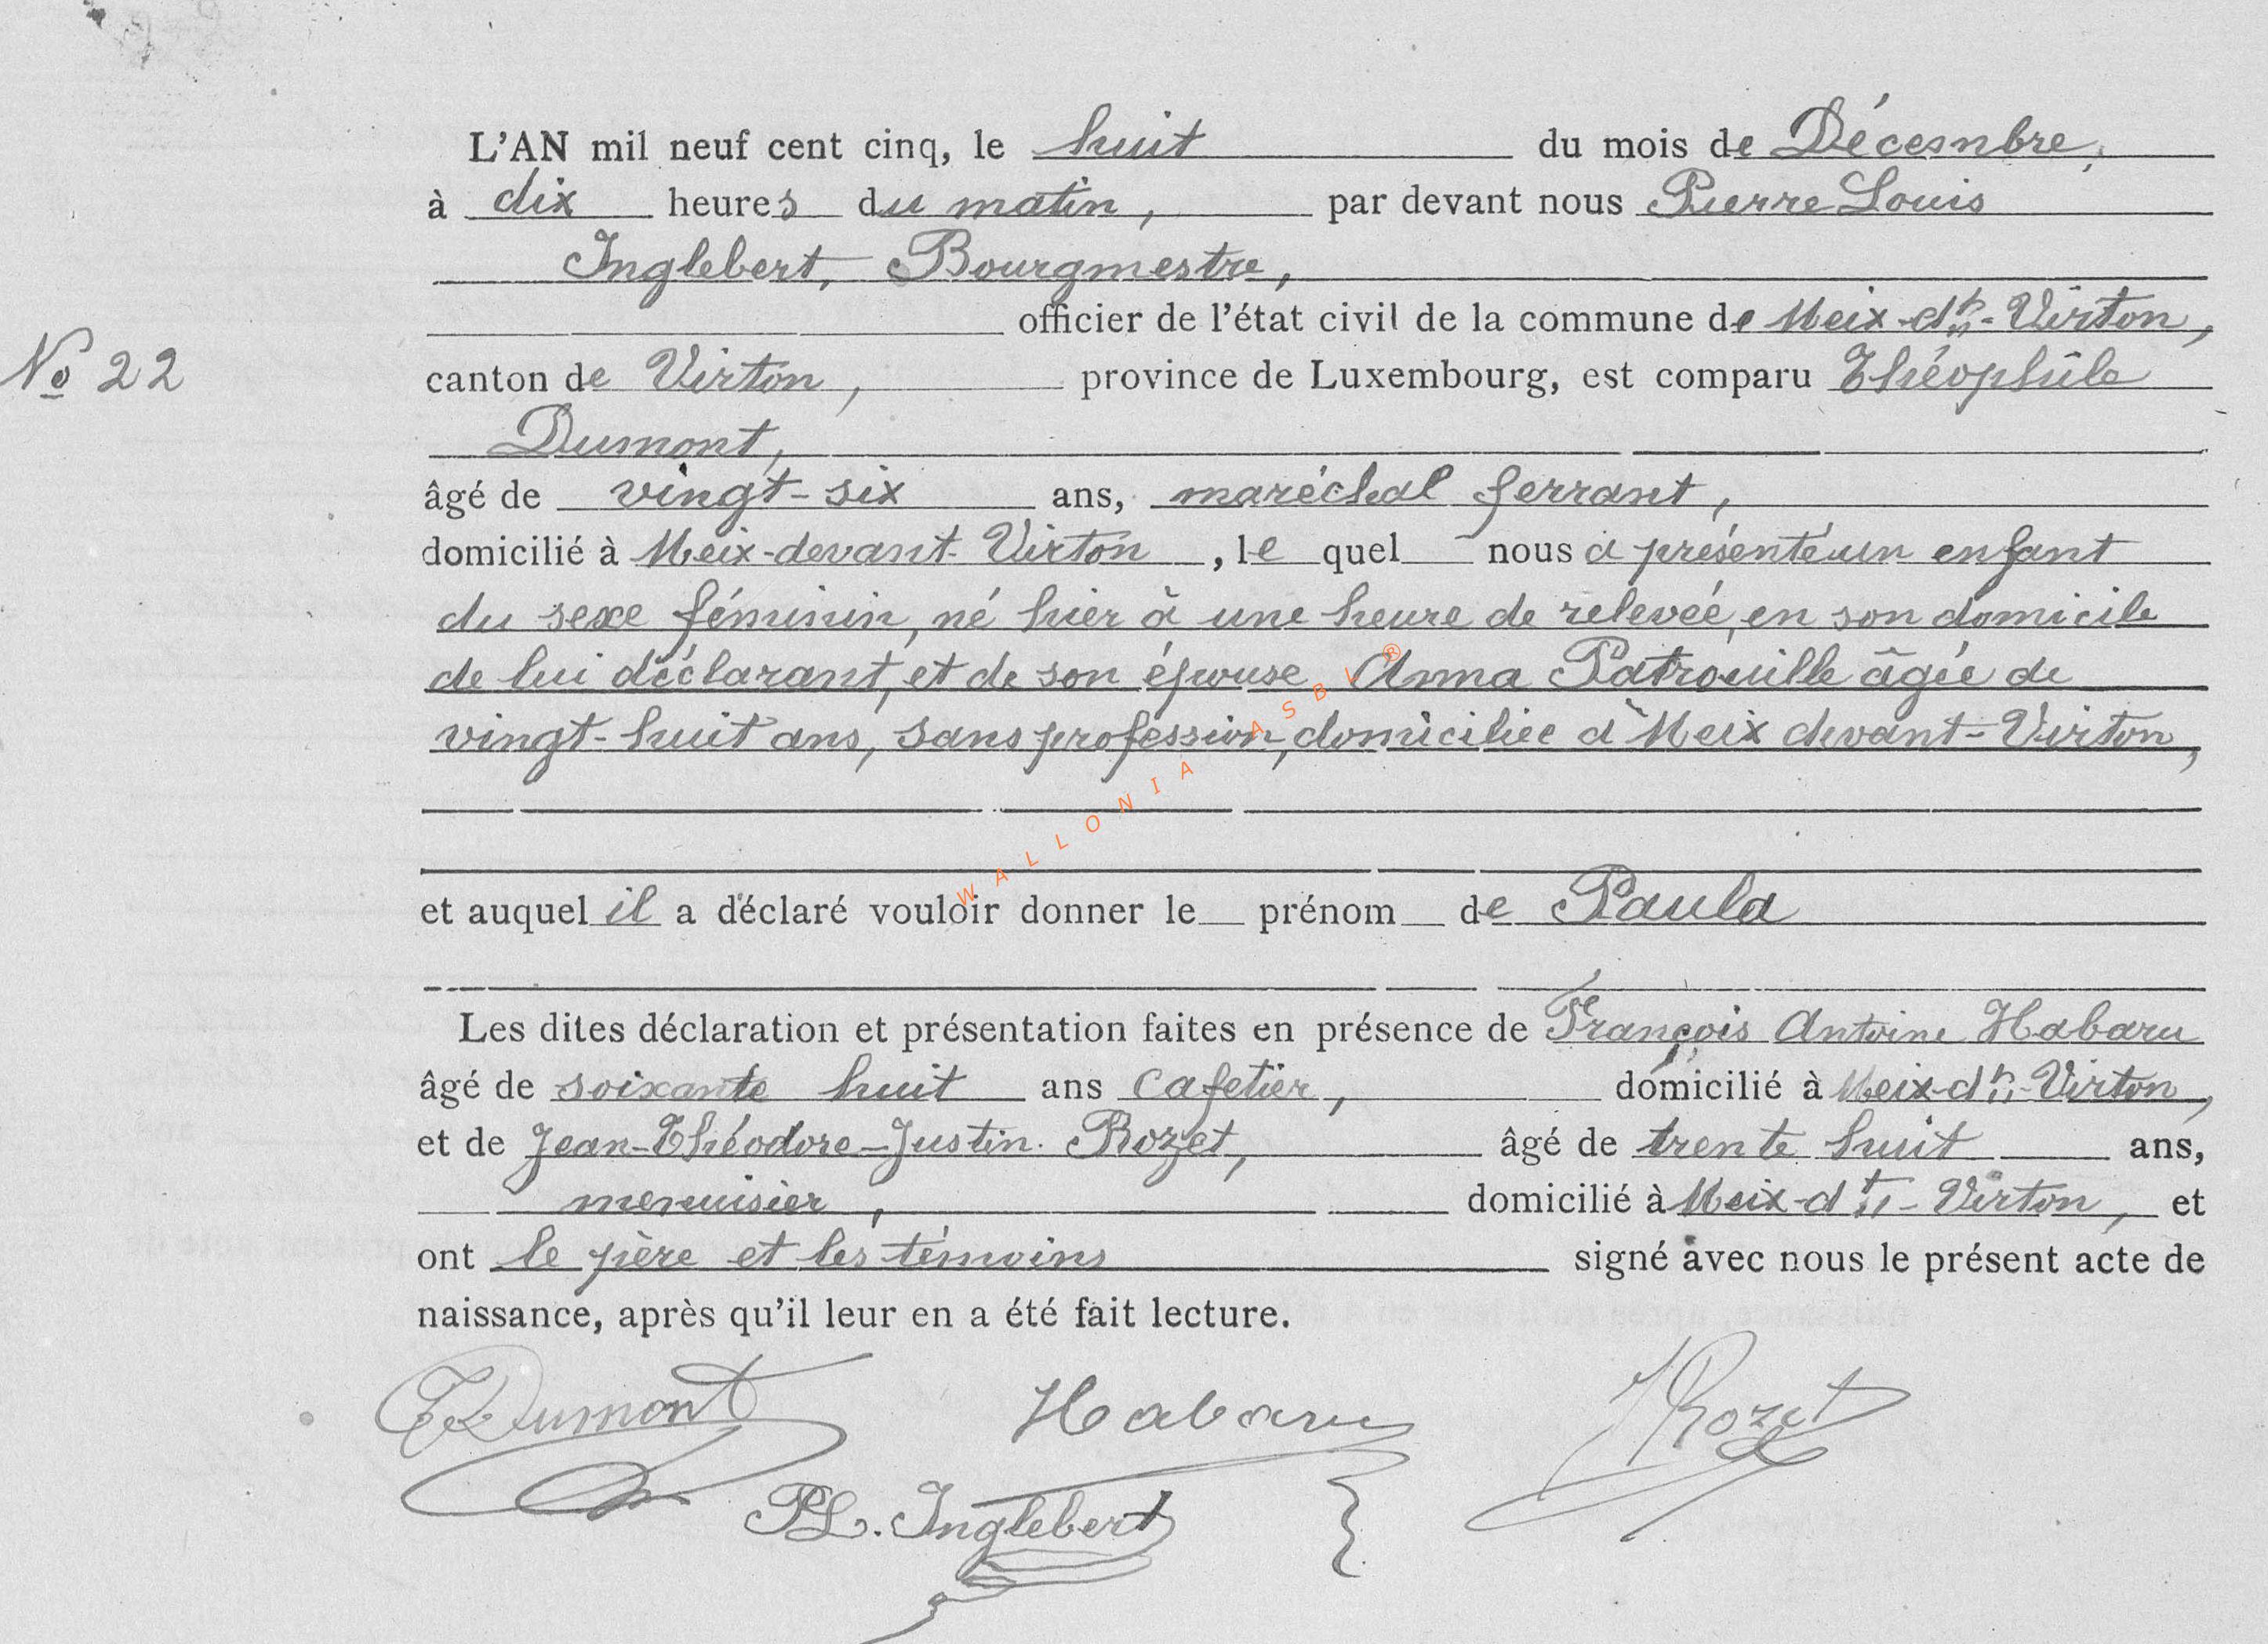 L'AN mil neuf cent cinq, le huit du mois de Décembre,
à dix heures du matin, par devant nous Pierre Louis
Inglebert, Bourgmestre,
officier de l'état civil de la commune de Meix-dt-Virton,
No 22
canton de Virton, province de Luxembourg, est comparu Théophile
Dumont,
âgé de vingt-six ans, maréchal ferrant,
domicilié à Meix-devant-Virton, le quel nous a présenté un enfant
du sexe féminin, né hier à une heure de relevée, en son domicile
de lui déclarant, et de son épouse Anna Patrouille âgée de
vingt-huit ans, sans profession, domiciliée à Meix devant-Virton,
WALLONIA ASBL ®
et auquel il a déclaré vouloir donner le prénom de Paula
Les dites déclaration et présentation faites en présence de François Antoine Habaru
âgé de soixante huit ans cafetier, domicilié à Meix-dt-Virton,
et de Jean-Théodore-Justin Rozet, âgé de trente huit ans,
menuisier, domicilié à Meix-dt-Virton, et
ont le père et les témoins signé avec nous le présent acte de
naissance, après qu'il leur en a été fait lecture.
Dumont Habaru J Rozet
PL. Inglebert